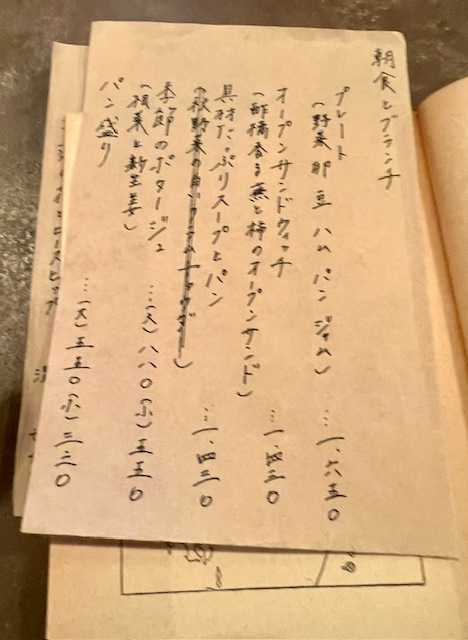 朝食とブランチ
プレート
(野菜 卵 豆 ハム パン ジャム) … 一、六五〇
オープンサンドウィッチ
(酢橘香る蕪と柿のオープンサンド) … 一、四三〇
具材たっぷりスープとパン
(秋野菜の白いクラムチャウダー) … 一、四三〇
季節のポタージュ
(根菜と新生姜) …(大)八八〇(小)五五〇
パン盛り
…(大)五五〇(小)三三〇